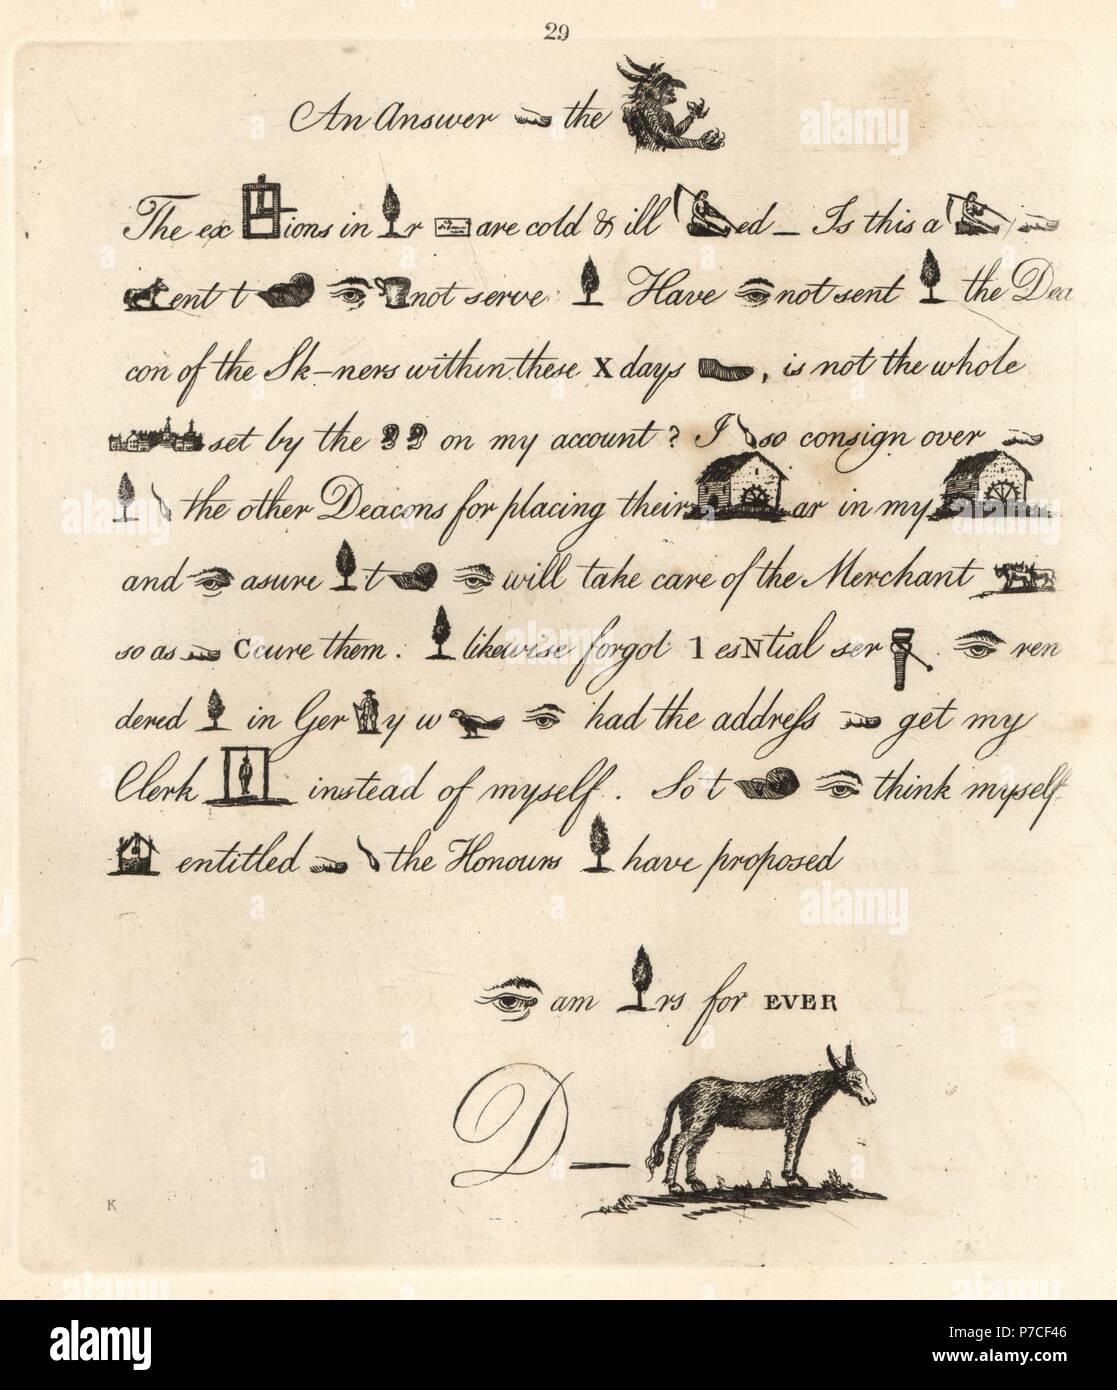 29
An Answer the
The ex ions in r are cold & ill ed _ Is this a
ent t not serve Have not sent the Dea
con of the Sk-ners within these X days , is not the whole
set by the on my account? I so consign over
the other Deacons for placing their ar in my
and asure t will take care of the Merchant
so as Ccure them. likewise forgot 1 esNtial ser . ren
dered in Ger y w had the address get my
Clerk instead of myself. So t think myself
entitled the Honours have proposed
am rs for EVER
D_
K
alamy
alamy
a
alamy
Image ID: P7CF46
www.alamy.com